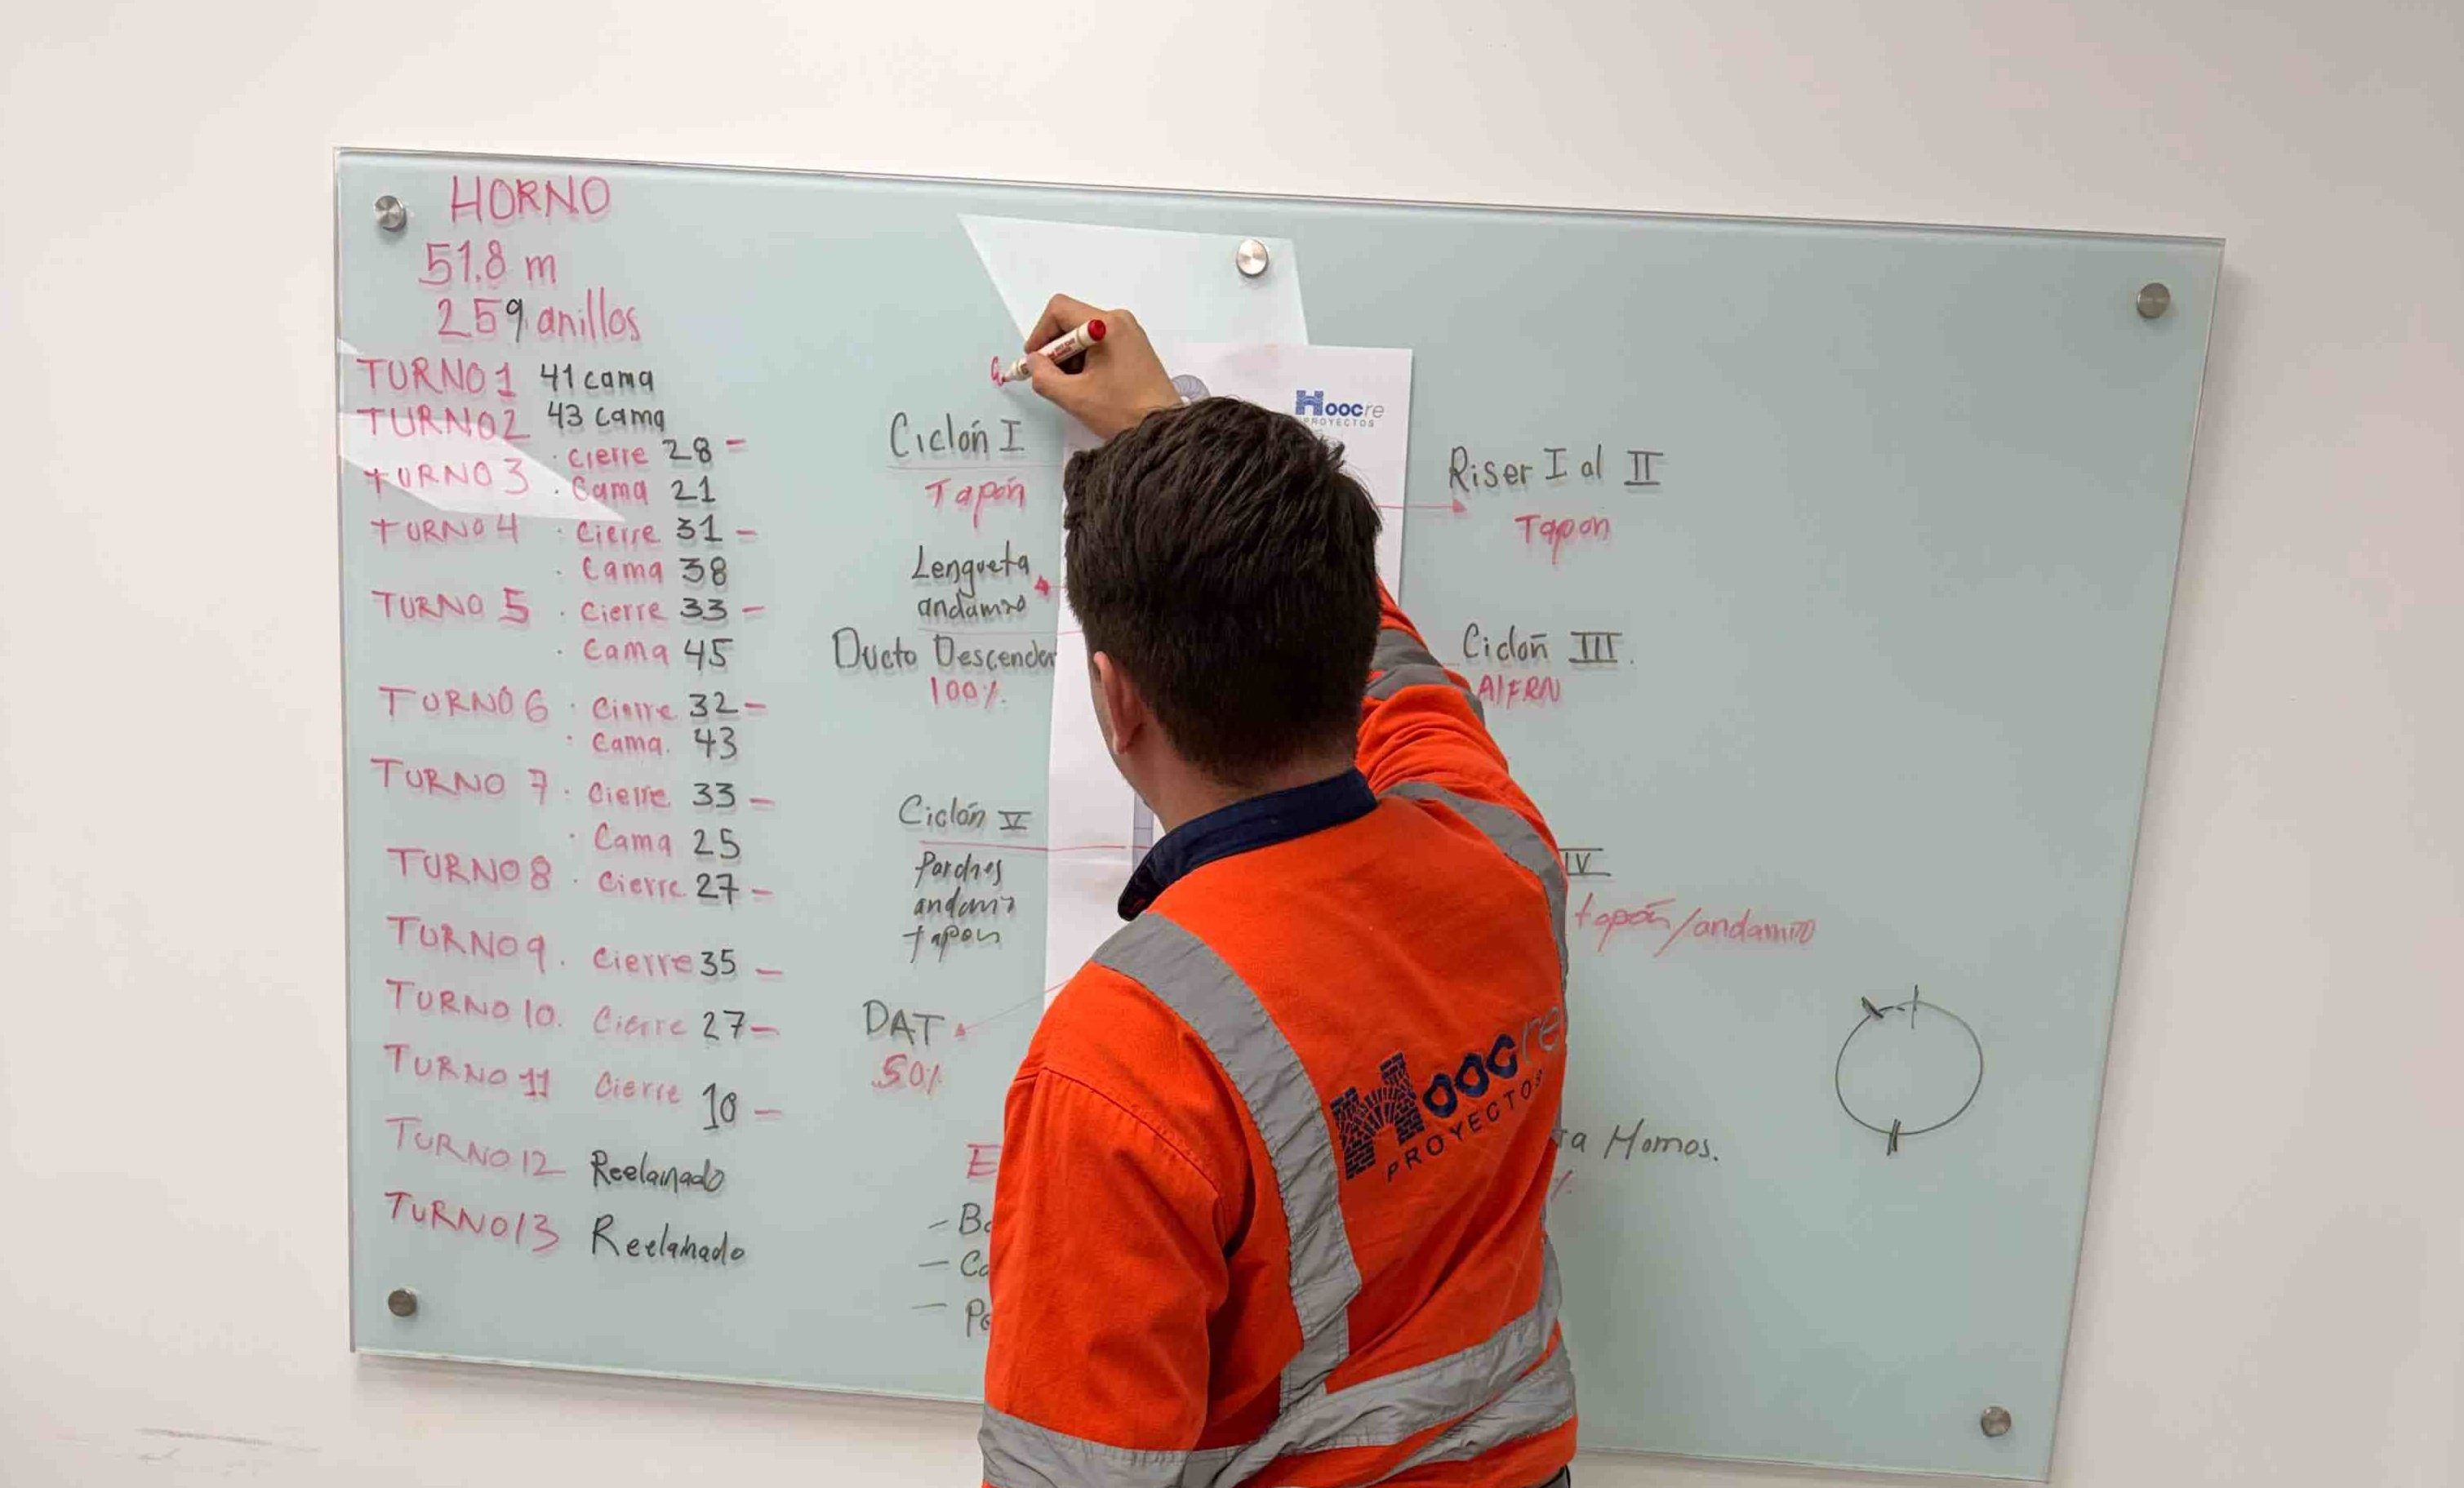 HORNO
51.8 m
259 anillos
TURNO 1 41 cama
TURNO 2 43 cama
· cierre 28 -
TURNO 3 · Cama 21
TURNO 4 · Cierre 31 -
· Cama 38
TURNO 5 · Cierre 33 -
· Cama 45
TURNO 6 · Cierre 32 -
· Cama. 43
TURNO 7 · Cierre 33 -
· Cama 25
TURNO 8 · Cierre 27 -
TURNO 9. Cierre 35 -
TURNO 10. Cierre 27 -
TURNO 11 Cierre 10 -
TURNO 12 Reelainado
TURNO 13 Reelainado
Ciclón I
Tapón
Lengueta
andamio
Ducto Descender
100%.
Ciclón V
Pardes
andami
tapon
DAT
50%
E
- Ba
- Ca
- Pa
Hoocre
PROYECTOS
Riser I al II
Tapon
Ciclón III.
A/FRN
IV
tapón/andamio
ra Homos.
%.
Hoocre
PROYECTOS